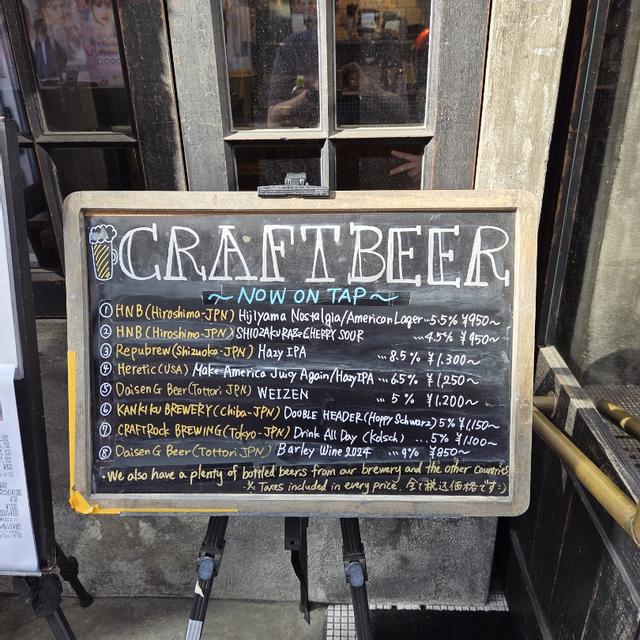 CRAFT BEER
~ NOW ON TAP ~
① HNB (Hiroshima-JPN) Hijiyama Nostalgia/American Lager...5.5% ¥950~
② HNB (Hiroshima-JPN) SHIOZAKURA&CHERRY SOUR ...4.5% ¥950~
③ Repubrew (Shizuoka-JPN) Hazy IPA ...8.5% ¥1,300~
④ Heretic (USA) Make America Juicy Again/Hazy IPA ...6.5% ¥1,250~
⑤ Daisen G Beer (Tottori JPN) WEIZEN ... 5% ¥1,200~
⑥ KANKIKU BREWERY (Chiba-JPN) DOUBLE HEADER (Hoppy Schwarz) 5% ¥1,150~
⑦ CRAFTROCK BREWING (Tokyo-JPN) Drink All Day (Kolsch) ...5% ¥1,100~
⑧ Daisen G Beer (Tottori JPN) Barley Wine 2024 ...9% ¥850~
・We also have a plenty of bottled beers from our brewery and the other countries
※ Taxes included in every price. 全て税込価格です:)